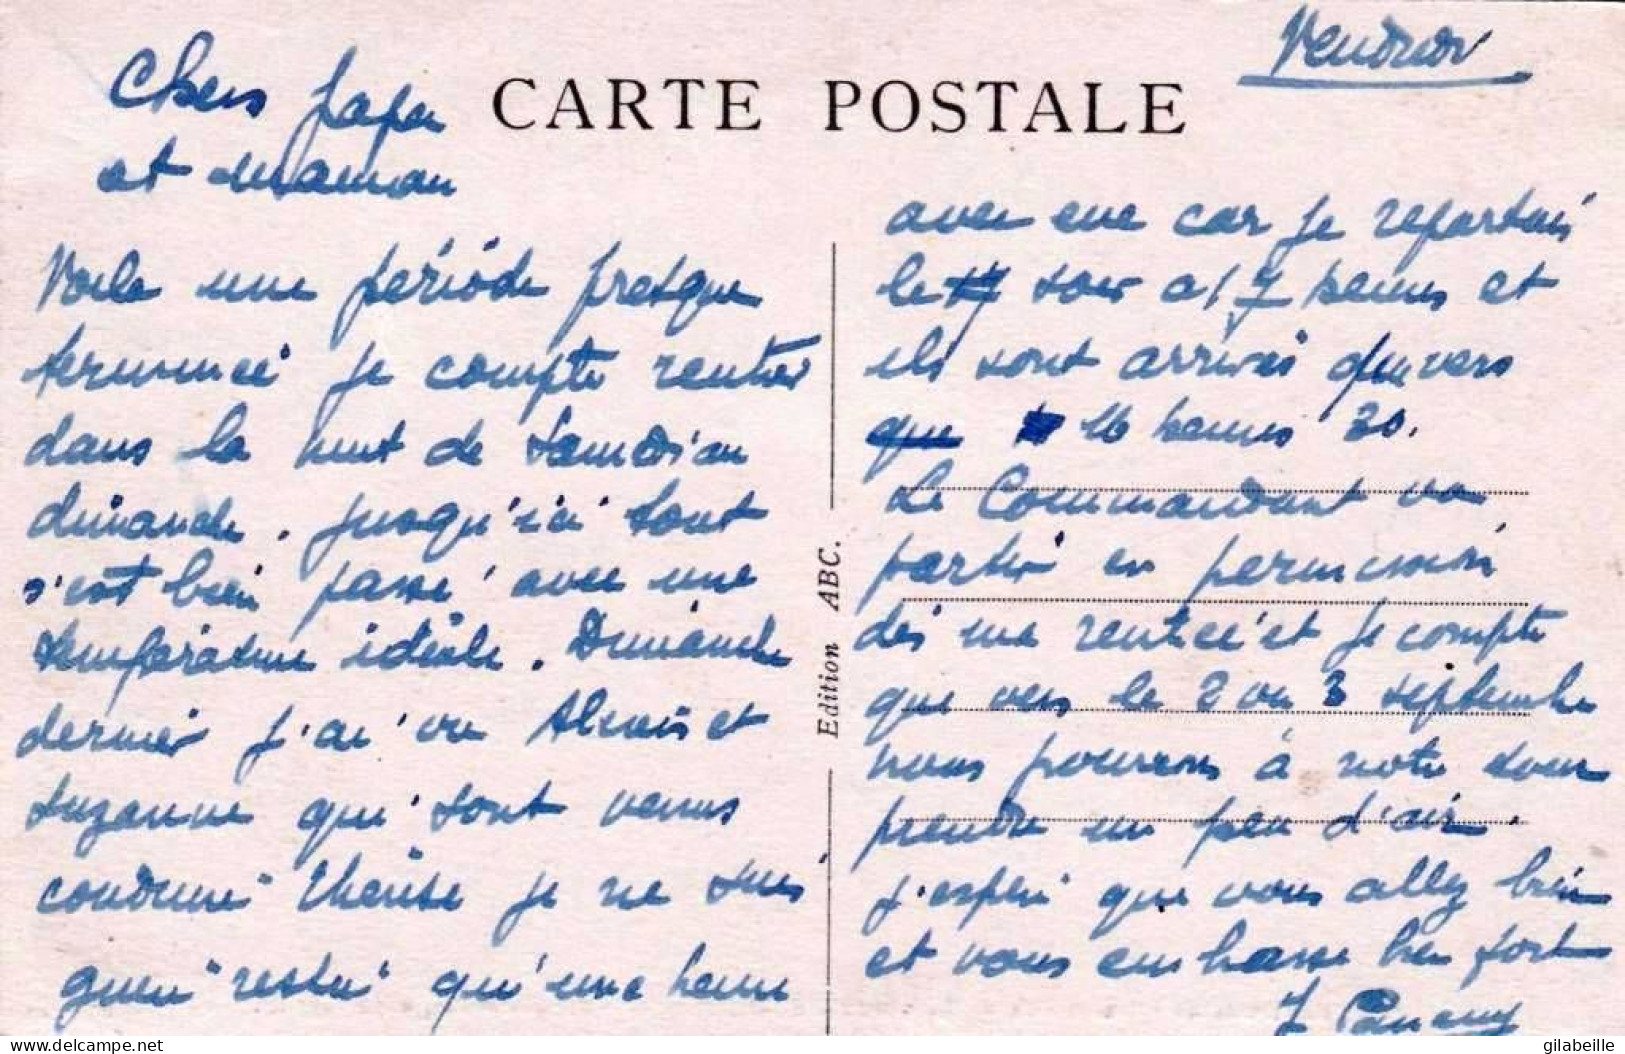 Vendredi
CARTE POSTALE
Chers papa
et maman
Voila une période presque
terminée je compte rentrer
dans la nuit de Samedi au
dimanche. jusqu'ici tout
s'est bien passé avec une
température idéale. Dimanche
dernier j'ai vu Alexis et
Suzanne qui sont venus
conduire Thérèse je ne suis
guère resté qu'une heure
avec eux car je repartais
le soir a 17 heures et
ils sont arrivés que vers
que 16 heures 30.
Le Commandant va
partir en permission
dès ma rentrée et je compte
que vers le 2 ou 3 septembre
nous pourrons à notre tour
prendre un peu d'air.
j'espère que vous allez bien
et vous embrasse bien fort
Edition ABC.
delcampe.net
gilabeille